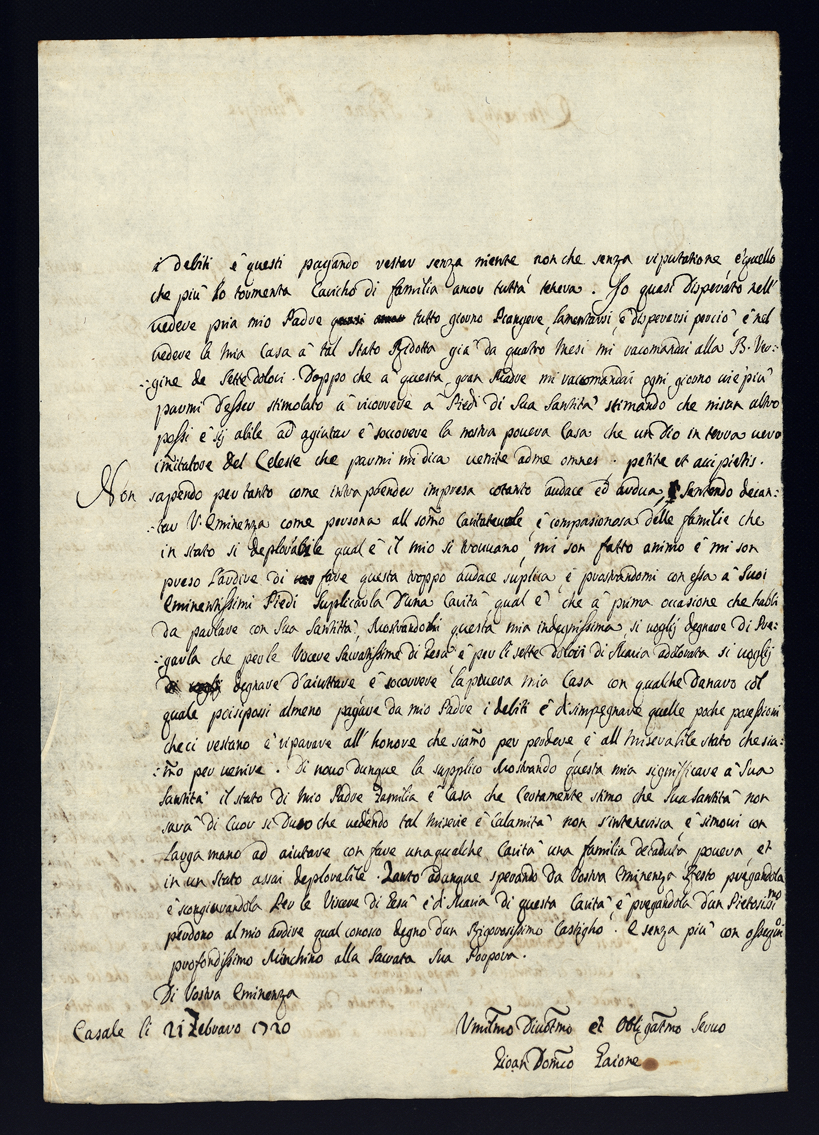 i debiti è questi pagando restar senza niente non che senza riputatione è quello
che più lo tormenta Caricho di familia ancor tuttà tenera. Jo quasi disperàto nell'
vedere pria mio Padre tutto giorno Piangere, lamentarsi è disperarsi perciò è nel
vedere la mia Casa à tal Stato Ridotta già da quatro mesi mi racomandai alla B. Ver-
-:gine de Sette dolori. Doppo che à questa gran Madre mi raccomandai ogni giorno vie più
parmi d'esser stimolato à ricorrere à Piedi di Sua Santità stimando che nisun altro
possi è sij abile ad agiutar è soccorere la nostra povera Casa che un Dio in terra vero
imitatore del Celeste che parmi mi dica venite ad me omnes. petite et accipietis.
Non sapendo per tanto come intraprender impresa cotanto audace ed ardua, Sentendo decan:
-:tar V. Eminenza come persona all som̃o Caritatevole, è compasionosa delle familie che
in stato si deplorabile qual è il mio si trovano, mi son fatto animo è mi son
preso l'ardire di fare questa troppo audace suplica, è prostrandomi con essa à Suoi
Eminentissimi Piedi Suplicarla d'una Carità qual è, che à prima occasione che habbi
da parlare con Sua Santittà, Mostrandoli questa mia indegnissima, si voglij degnare di Pre-
-:garla che per le Viscere Sacratissime di Gesù è per li sette dolori di Maria adolorata si voglij
degnare d'aiuttare è socorrere la povera mia Casa con qualche denaro col
quale potessi almeno pagare da mio Padre i debiti è disimpegnare quelle poche possessioni
che ci restano è riparare all'honore che siam̃o per perdere è all miserabile stato che sia-
-:m̃o per venire. Di novo dunque la supplico Mostrando questa mia significare à Sua
Santità il stato di mio Padre Familia è Casa che Certamente stimo che Sua Santità non
sarà di Cuor si Duro che vedendo tal Miserie è Calamità non s'intenerisca è si movi con
Larga mano ad aiutare con fare una qualche Carità una familia decaduta povera et
in un stato assai deplorabile. Tanto adunque sperando da Vostra Eminenza Resto pregandola
è scongiurandola Per le Viscere di Gesù è di Maria di questa Carità è pregandola d'un Pietosis.mo
perdono al mio ardire qual conosco degno d'un Rigorosissimo Castigho. E senza più con ossequi
profondissimo M'inchino alla Sacrata Sua Porpora.
Di Vostra Eminenza
Casale li 21 Febraro 1720
Vmilm̃o Divotm̃o et Obligatm̃o Servo
Gioan Dom̃co Faione